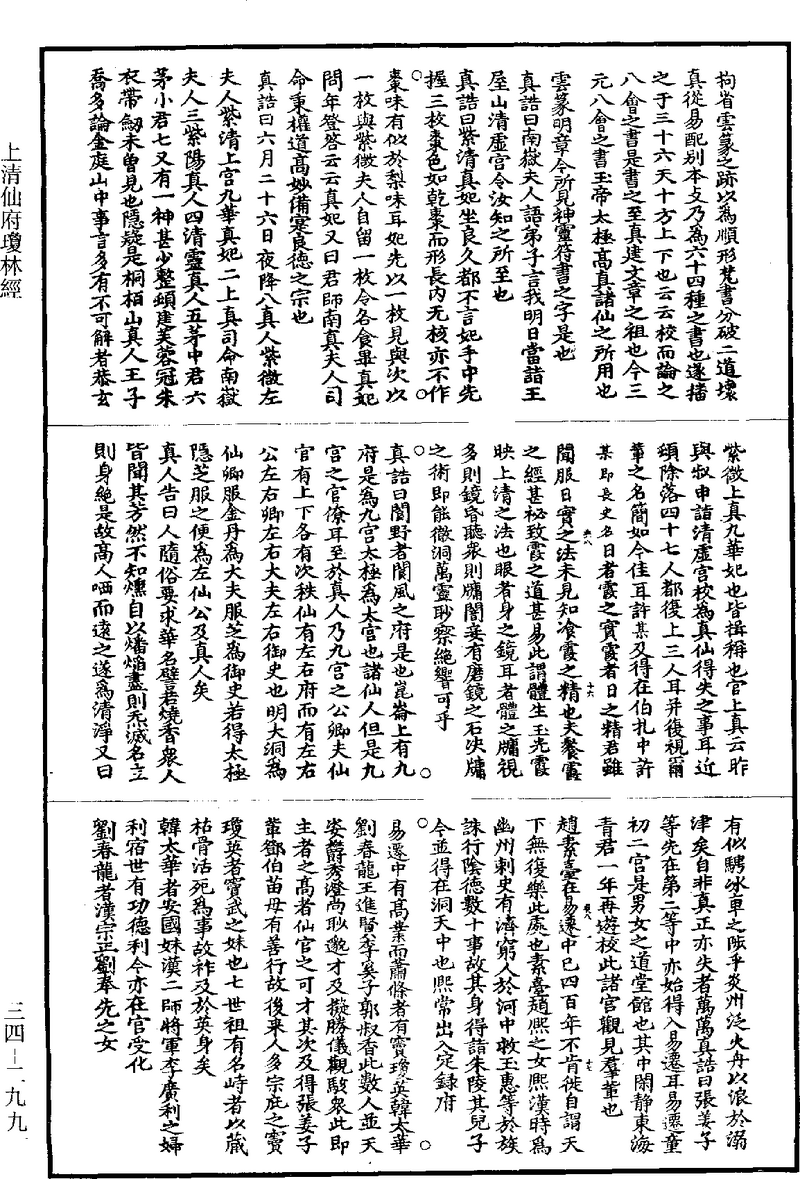 拘省雲篆之跡以為順形梵書分破二道壞
真從易配别本攴乃為六十四種之書也遂播
之于三十六天十方上下也云云校而論之
八會之書是書之至真建文章之祖也今三
元八會之書玉帝太極高真諸仙之所用也
雲篆明章今所見神靈符書之字是也
真誥曰南嶽夫人語弟子言我明日當詣王
屋山清虛宫令汝知之所至也
真誥曰紫清真妃坐良久都不言妃手中先
握三枚棗色如乾棗而形長内无核亦不作
棗味有似於梨味耳妃先以一枚見與次以
一枚與紫微夫人自留一枚令各食畢真妃
問年登答云云真妃又曰君師南真夫人司
命秉權道高妙備寔良德之宗也
真誥曰六月二十六日夜降八真人紫微左
夫人紫清上宫九華真妃二上真司命南嶽
夫人三紫陽真人四清靈真人五茅中君六
茅小君七又有一神甚少整頓建芙蓉冠朱
衣帶劒未曾見也隱疑是桐栢山真人王子
喬多論金庭山中事言多有不可解者恭玄
紫微上真九華妃也皆揖稱也官上真云昨
與叔申詣清虛宫校為真仙得失之事耳近
頓除落四十七人都復上三人耳并復視爾
輩之名簡如今佳耳許某及得在伯札中許
某即長史名日者霞之實霞者日之精君雖
聞服日實之法未見知飡霞之精也夫飡霞
之經甚祕致霞之道甚易此謂體生玉光霞
映上清之法也眼者身之鏡耳者體之牖視
多則鏡昏聽衆則牖闇妾有磨鏡之石決牖
之術即能徹洞萬靈眇察絶響可乎
真誥曰閬野者閬風之府是也崑崙上有九
府是為九宫太極為太宫也諸仙人但是九
宫之官僚耳至於真人乃九宫之公卿夫仙
官有上下各有次秩仙有左右府而有左右
公左右卿左右大夫左右御史也明大洞為
仙卿服金丹為大夫服芝為御史若得太極
隱芝服之便為左仙公及真人矣
真人告曰人隨俗要求華名譬若燒香衆人
皆聞其芳然不知燻自以燔焔盡則炁滅名立
則身絶是故高人哂而遠之遂為清淨又曰
有似騁冰車之陟乎炎州泛火舟以浪於溺
津矣自非真正亦失者萬萬真誥曰張姜子
等先在第二等中亦始得入易遷耳易遷童
初二宫是男女之道堂館也其中閑靜東海
青君一年再遊校此諸宫觀見羣輩也
趙素臺在易遷中已四百年不肯徙自謂天
下無復樂此處也素臺趙熙之女熙漢時為
幽州刺史有濟窮人於河中救王惠等於族
誅行陰德數十事故其身得詣朱陵其兒子
今並得在洞天中也熙常出入定録府
易遷中有高業而蕭條者有竇瓊英韓太華
劉春龍王進賢李奚子郭叔香此數人並天
姿欝秀澄尚眇邈才及擬勝儀觀駭衆此即
主者之高者仙官之可才其次及得張姜子
輩鄧伯苗母有善行故後来人多宗庇之竇
瓊英者竇武之妹也七世祖有名峙者以藏
枯骨活死為事故祚及於英身矣
韓太華者安國妹漢二師將軍李廣利之婦
利宿世有功德利今亦在官受化
劉春龍者漢宗正劉奉先之女
上清仙府瓊林經
三四—二九九